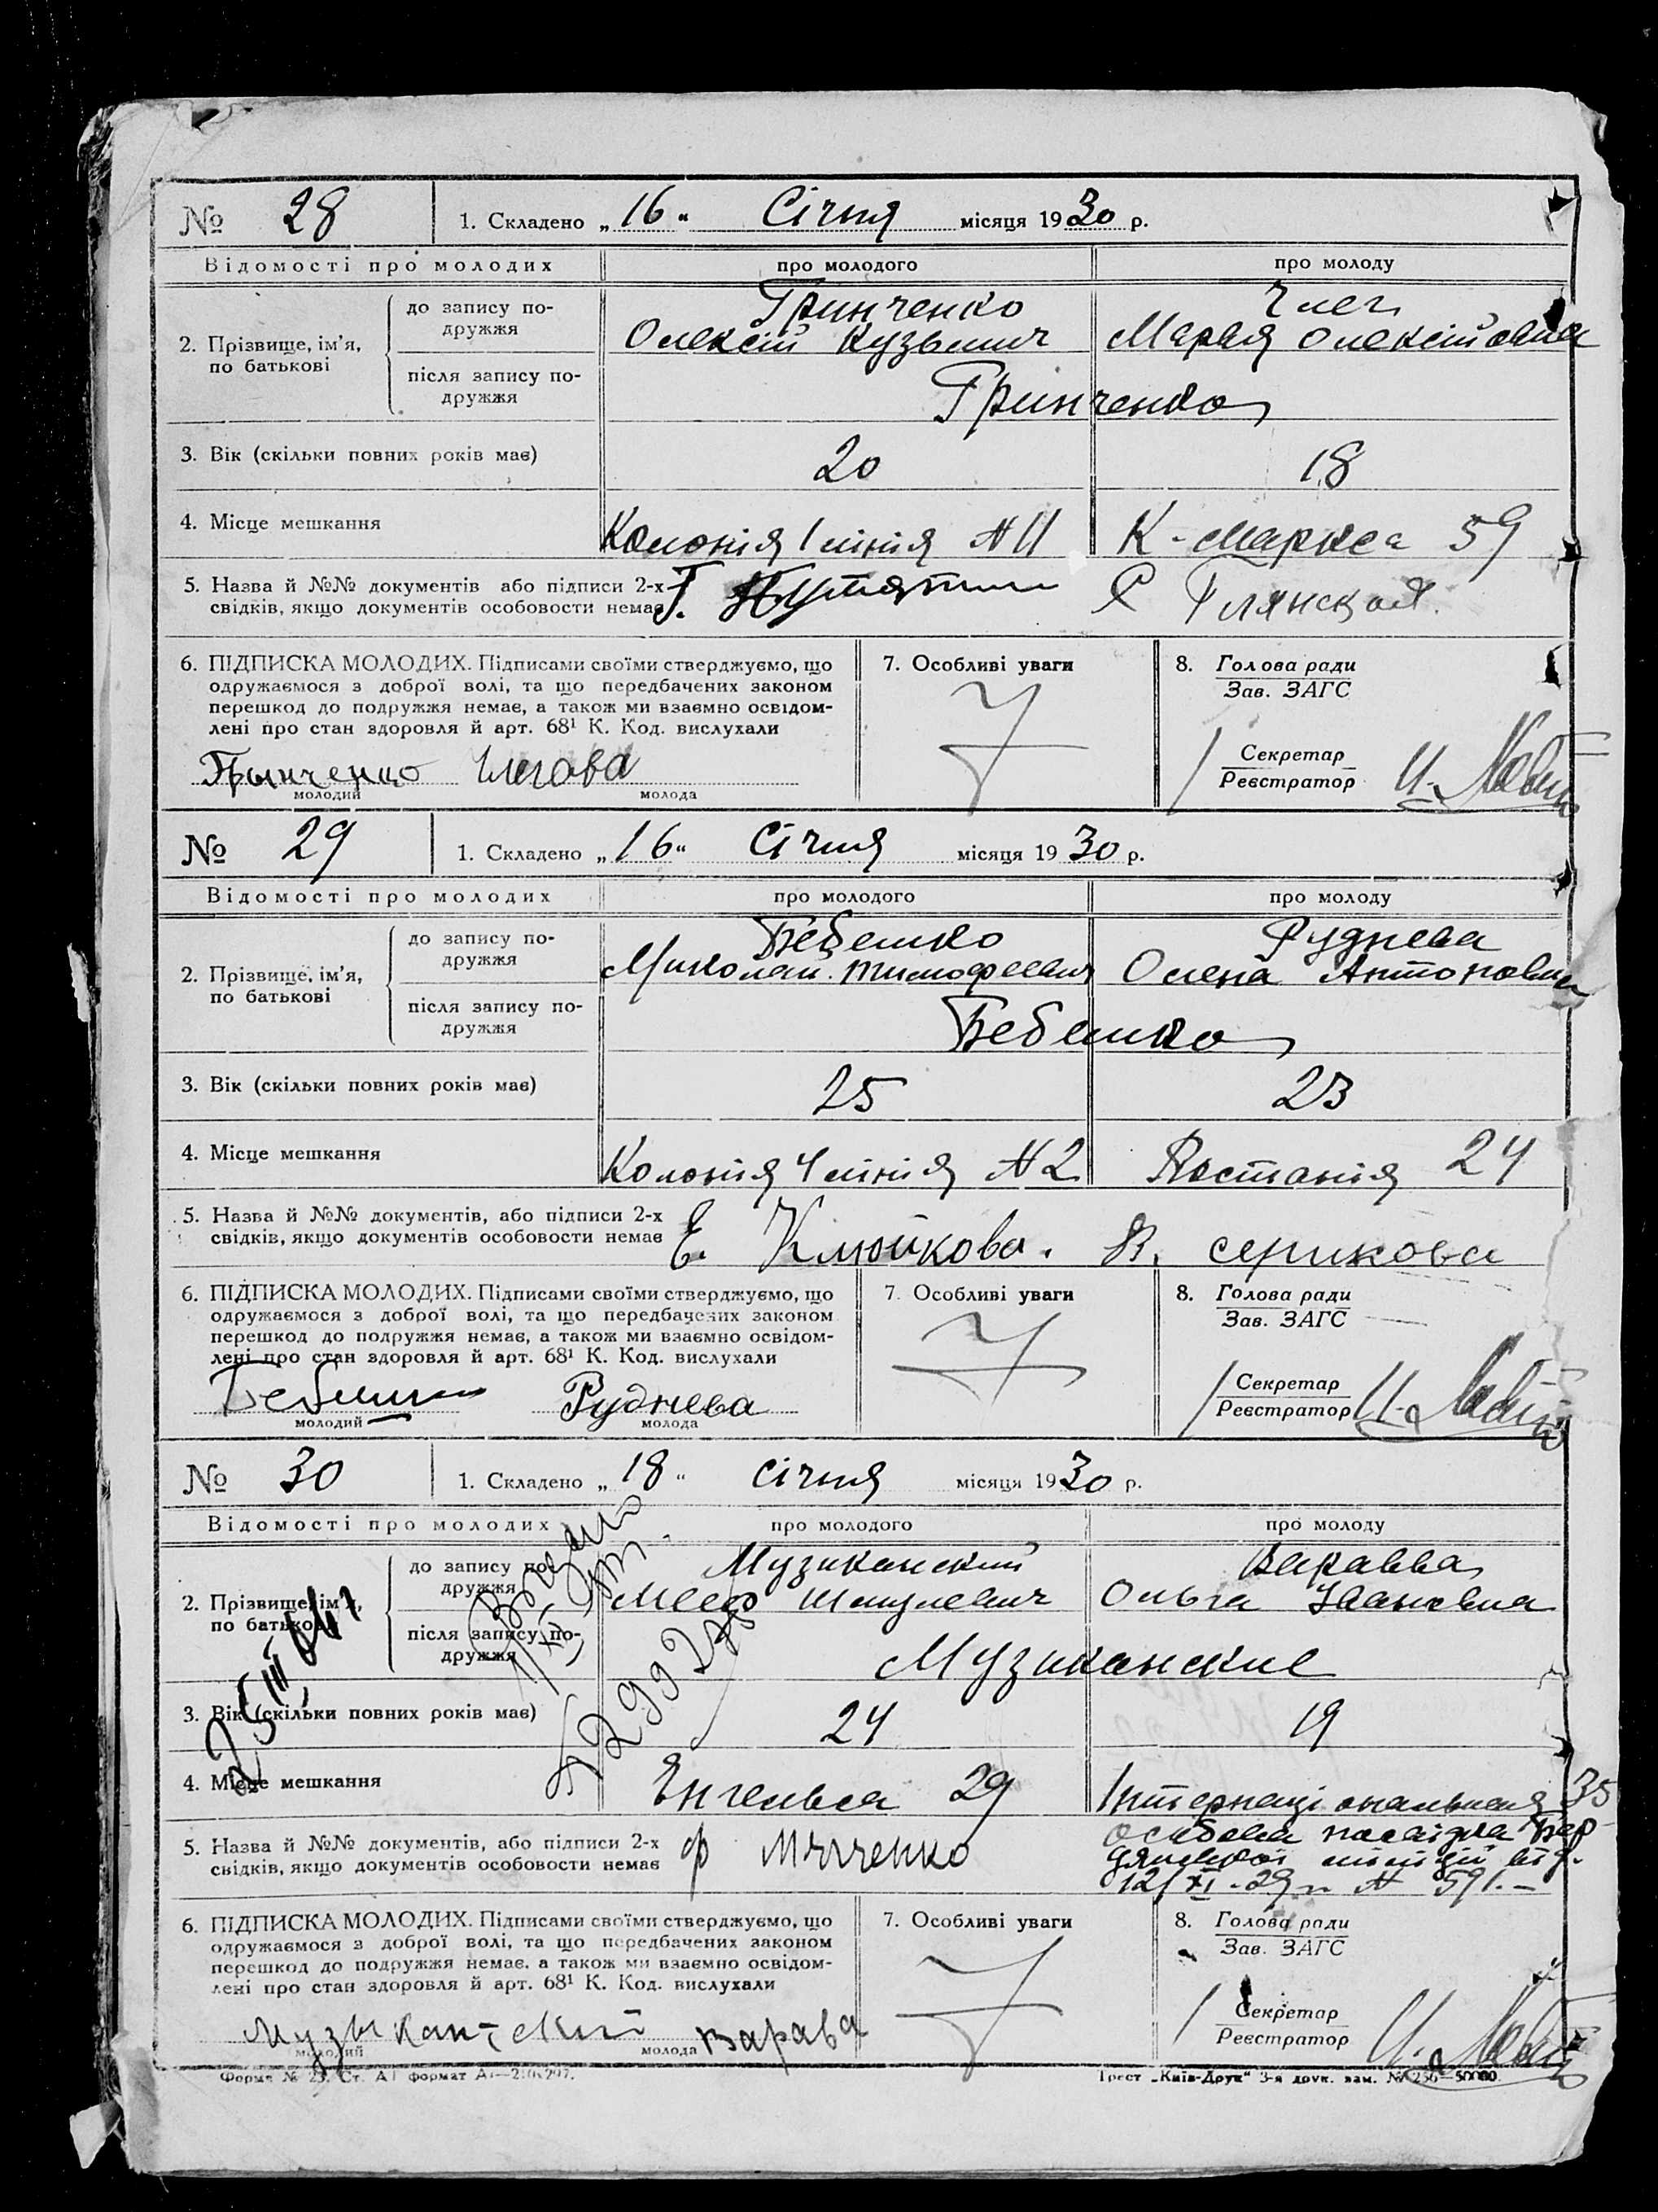 № 28 1. Складено „16“ Січня місяця 1930 р.
Відомості про молодих про молодого про молоду
2. Прізвище, ім’я, по батькові
до запису подружжя
Гринченко
Олексій Кузьмич Марья Олексіївна
після запису по-
дружжя
Грінченко
3. Вік (скільки повних років має) 20 18
4. Місце мешкання Колонія 1 лінія N 11 К-Маркса 59
5. Назва й №№ документів або підписи 2-х
свідків, якщо документів особовости немає
6. ПІДПИСКА МОЛОДИХ. Підписами своїми стверджуємо, що
одружаємося з доброї волі, та що передбачених законом
перешкод до подружжя немає, а також ми взаємно освідом-
лені про стан здоровля й арт. 68¹ К. Код. вислухали
Грынченко
молодий молода
7. Особливі уваги
8. Голова ради
Зав. ЗАГС
Секретар
Реєстратор
№ 29 1. Складено „16“ Січня місяця 1930 р.
Відомості про молодих про молодого про молоду
2. Прізвище, ім’я,
по батькові
до запису по-
дружжя
Бебешко Руднева
Миколай Тимофеевич Олена Антоновна
після запису по-
дружжя
Бебешко
3. Вік (скільки повних років має) 25 23
4. Місце мешкання Колонія 4 лінія N 2 Востанія 24
5. Назва й №№ документів, або підписи 2-х
свідків, якщо документів особовости немає
Е. Клюйкова. В. серикова
6. ПІДПИСКА МОЛОДИХ. Підписами своїми стверджуємо, що
одружаємося з доброї волі, та що передбачених законом
перешкод до подружжя немає, а також ми взаємно освідом-
лені про стан здоровля й арт. 68¹ К. Код. вислухали
Руднева
молодий молода
7. Особливі уваги
8. Голова ради
Зав. ЗАГС
Секретар
Реєстратор
№ 30 1. Складено „18“ січня місяця 1930 р.
Відомості про молодих про молодого про молоду
2. Прізвище, ім’я,
по батькові
до запису по-
дружжя
Музиканский Варавва
Шмулевич Ольга Івановна
після запису по-
дружжя
Музиканские
3. Вік (скільки повних років має) 24 19
4. Місце мешкання Енгельса 29 Інтернаціональная 35
5. Назва й №№ документів, або підписи 2-х
свідків, якщо документів особовости немає
Ф
12/XI-29 р N 591.-
6. ПІДПИСКА МОЛОДИХ. Підписами своїми стверджуємо, що
одружаємося з доброї волі, та що передбачених законом
перешкод до подружжя немає, а також ми взаємно освідом-
лені про стан здоровля й арт. 68¹ К. Код. вислухали
Музыкантский Варава
молодий молода
7. Особливі уваги
8. Голова ради
Зав. ЗАГС
Секретар
Реєстратор
Трест „Київ-Друк“ 3-я друк. зам. № 256—50000